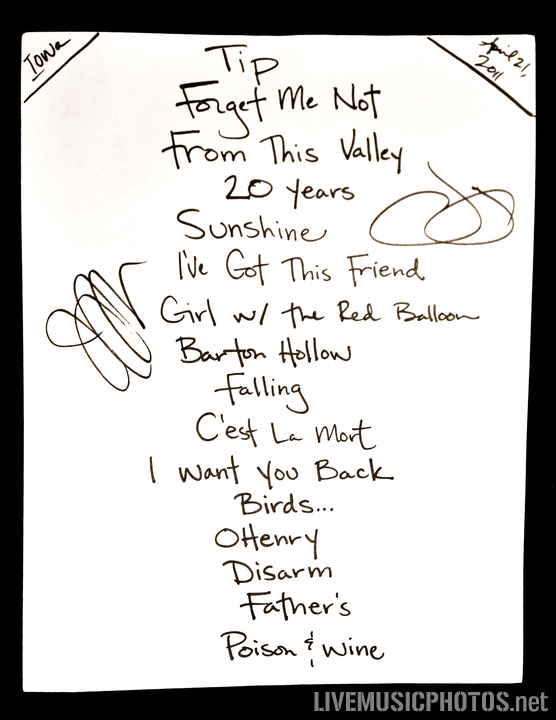 Iowa
April 21,
2011
Tip
Forget Me Not
From This Valley
20 years
Sunshine
I've Got This Friend
Girl w/ the Red Balloon
Barton Hollow
Falling
C'est La Mort
I want you Back
Birds...
OHenry
Disarm
Father's
Poison & wine
LIVEMUSICPHOTOS.net